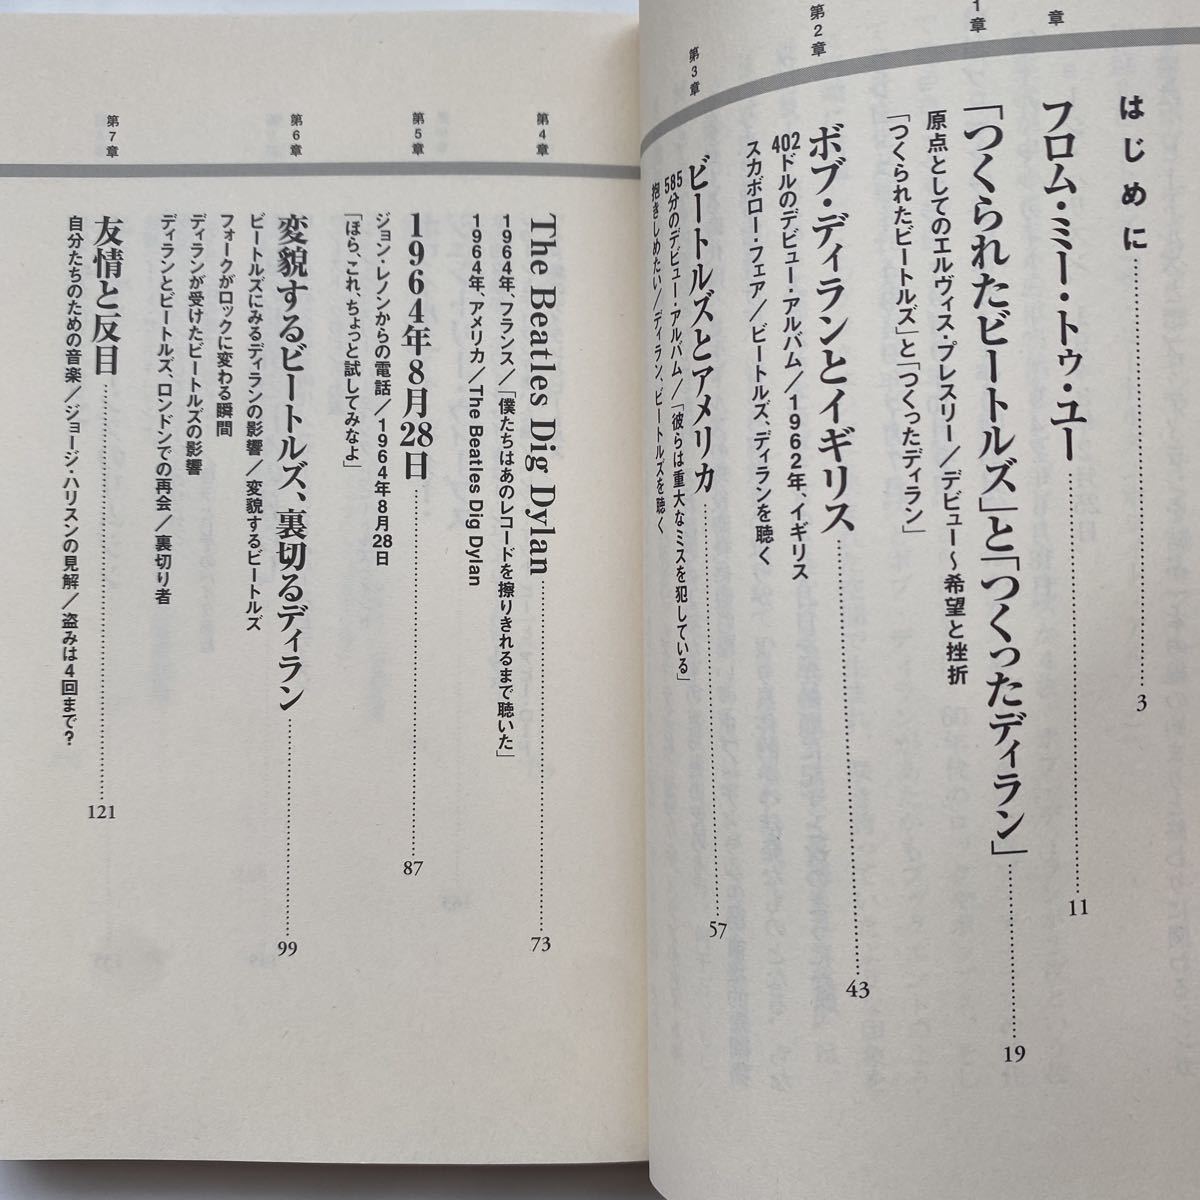 はじめに 3
章
フロム・ミー・トゥ・ユー 11
1章
「つくられたビートルズ」と「つくったディラン」 19
原点としてのエルヴィス・プレスリー／デビュー〜希望と挫折
「つくられたビートルズ」と「つくったディラン」
第2章
ボブ・ディランとイギリス 43
402ドルのデビュー・アルバム／1962年、イギリス
スカボロー・フェア／ビートルズ、ディランを聴く
第3章
ビートルズとアメリカ 57
585分のデビュー・アルバム／「彼らは重大なミスを犯している」
抱きしめたい／ディラン、ビートルズを聴く
第4章
The Beatles Dig Dylan 73
1964年、フランス／「僕たちはあのレコードを擦りきれるまで聴いた」
1964年、アメリカ／The Beatles Dig Dylan
第5章
1964年8月28日 87
ジョン・レノンからの電話／1964年8月28日
「ほら、これ、ちょっと試してみなよ」
第6章
変貌するビートルズ、裏切るディラン 99
ビートルズにみるディランの影響／変貌するビートルズ
フォークがロックに変わる瞬間
ディランが受けたビートルズの影響
ディランとビートルズ、ロンドンでの再会／裏切り者
第7章
友情と反目 121
自分たちのための音楽／ジョージ・ハリスンの見解／盗みは4回まで？